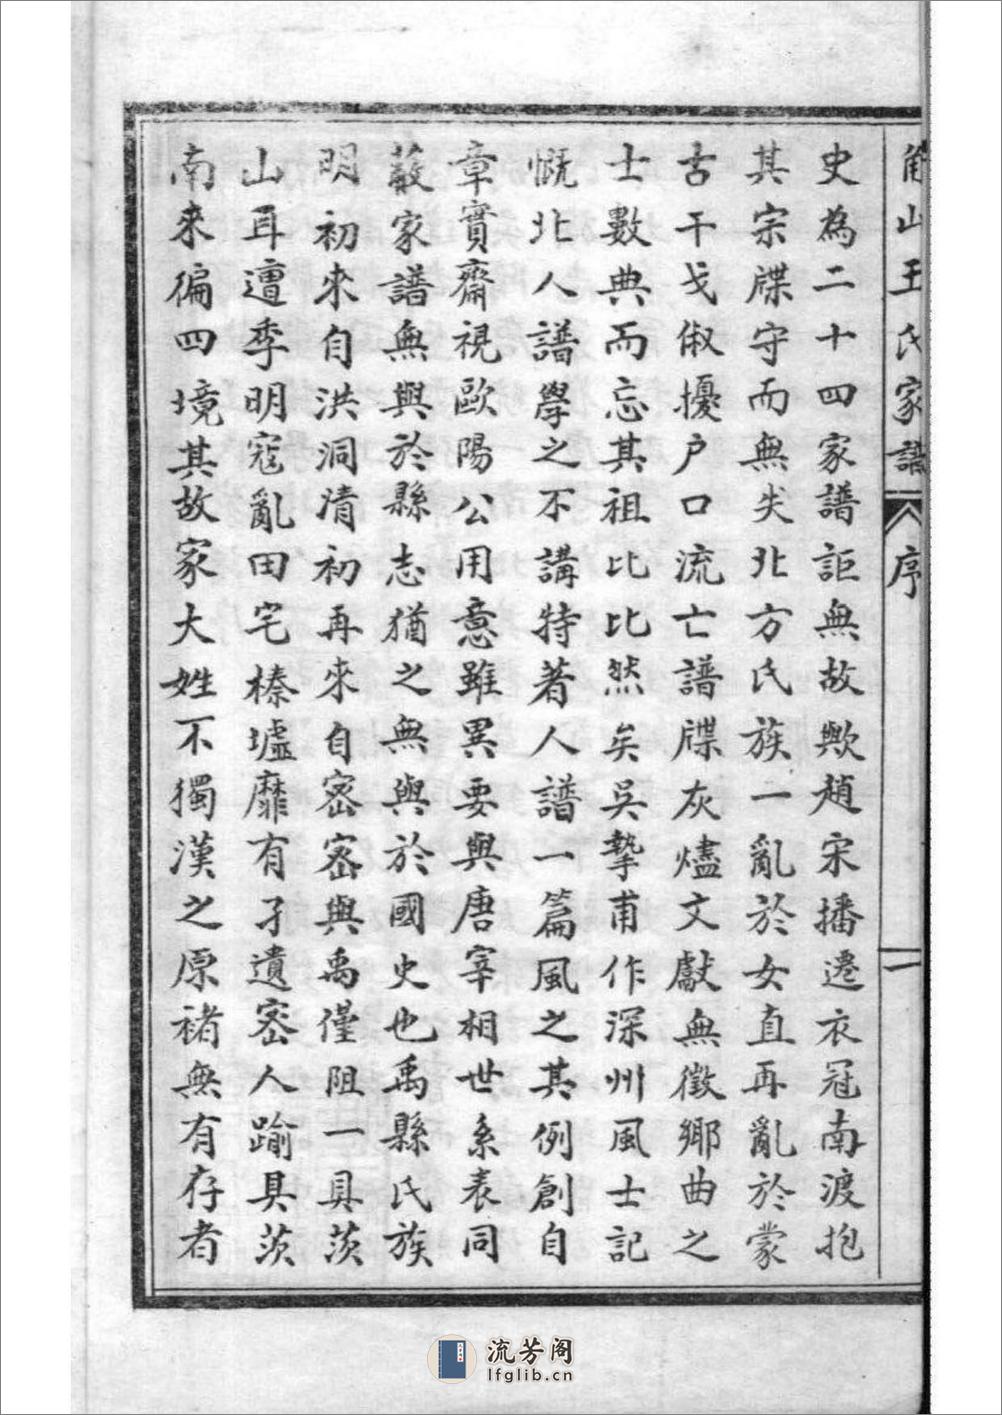 角山王氏家譜 序 一
史為二十四家譜詎無故歟趙宋播遷衣冠南渡抱
其宗牒守而無失北方氏族一亂於女直再亂於蒙
古干戈俶擾户口流亡譜牒灰燼文獻無徵鄉曲之
士數典而忘其祖比比然矣吳摯甫作深州風士記
慨北人譜學之不講特著人譜一篇風之其例創自
章實齋視歐陽公用意雖異要與唐宰相世系表同
蔽家譜無與於縣志猶之無與於國史也禹縣氏族
明初來自洪洞清初再來自密密與禹僅阻一具茨
山耳遭季明寇亂田宅榛墟靡有孑遺密人踰具茨
南來徧四境其故家大姓不獨漢之原褚無有存者
流芳阁
lfglib.cn